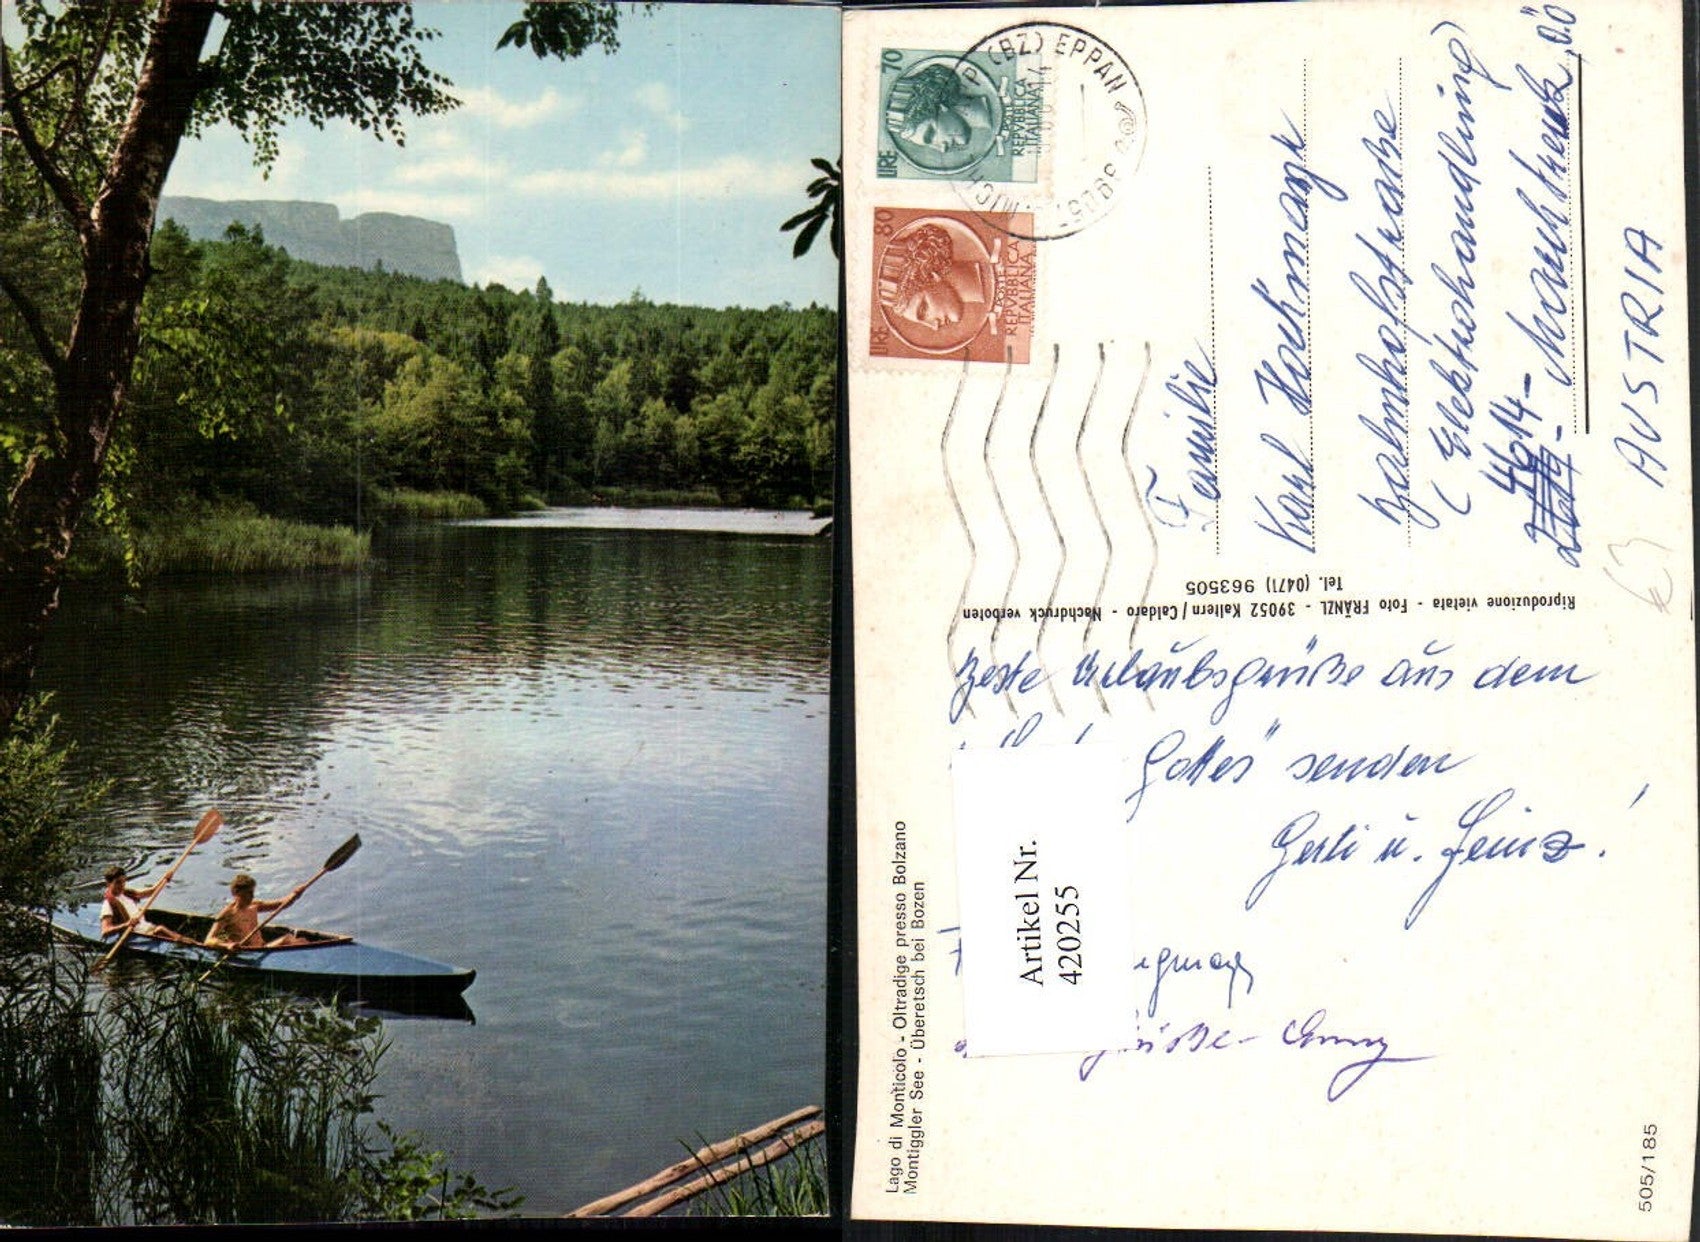 LIRE 70
POSTE
REPVBBLICA
ITALIANA
(BZ) EPPAN
LIRE 80
POSTE
REPVBBLICA
ITALIANA
Familie
Karl Hochmayr
Bahnhofstraße
(Elektrohandlung)
4614-
Marchtrenk, OÖ
AUSTRIA
Riproduzione vietata - Foto FRÄNZL - 39052 Kaltern / Caldaro - Nachdruck verboten
Tel. (0471) 963505
Beste Urlaubsgrüße aus dem
Gottes" senden
Gerti u. Heinz.
Grüße-
Artikel Nr.
420255
Lago di Monticolo - Oltradige presso Bolzano
Montiggler See - Überetsch bei Bozen
505/185